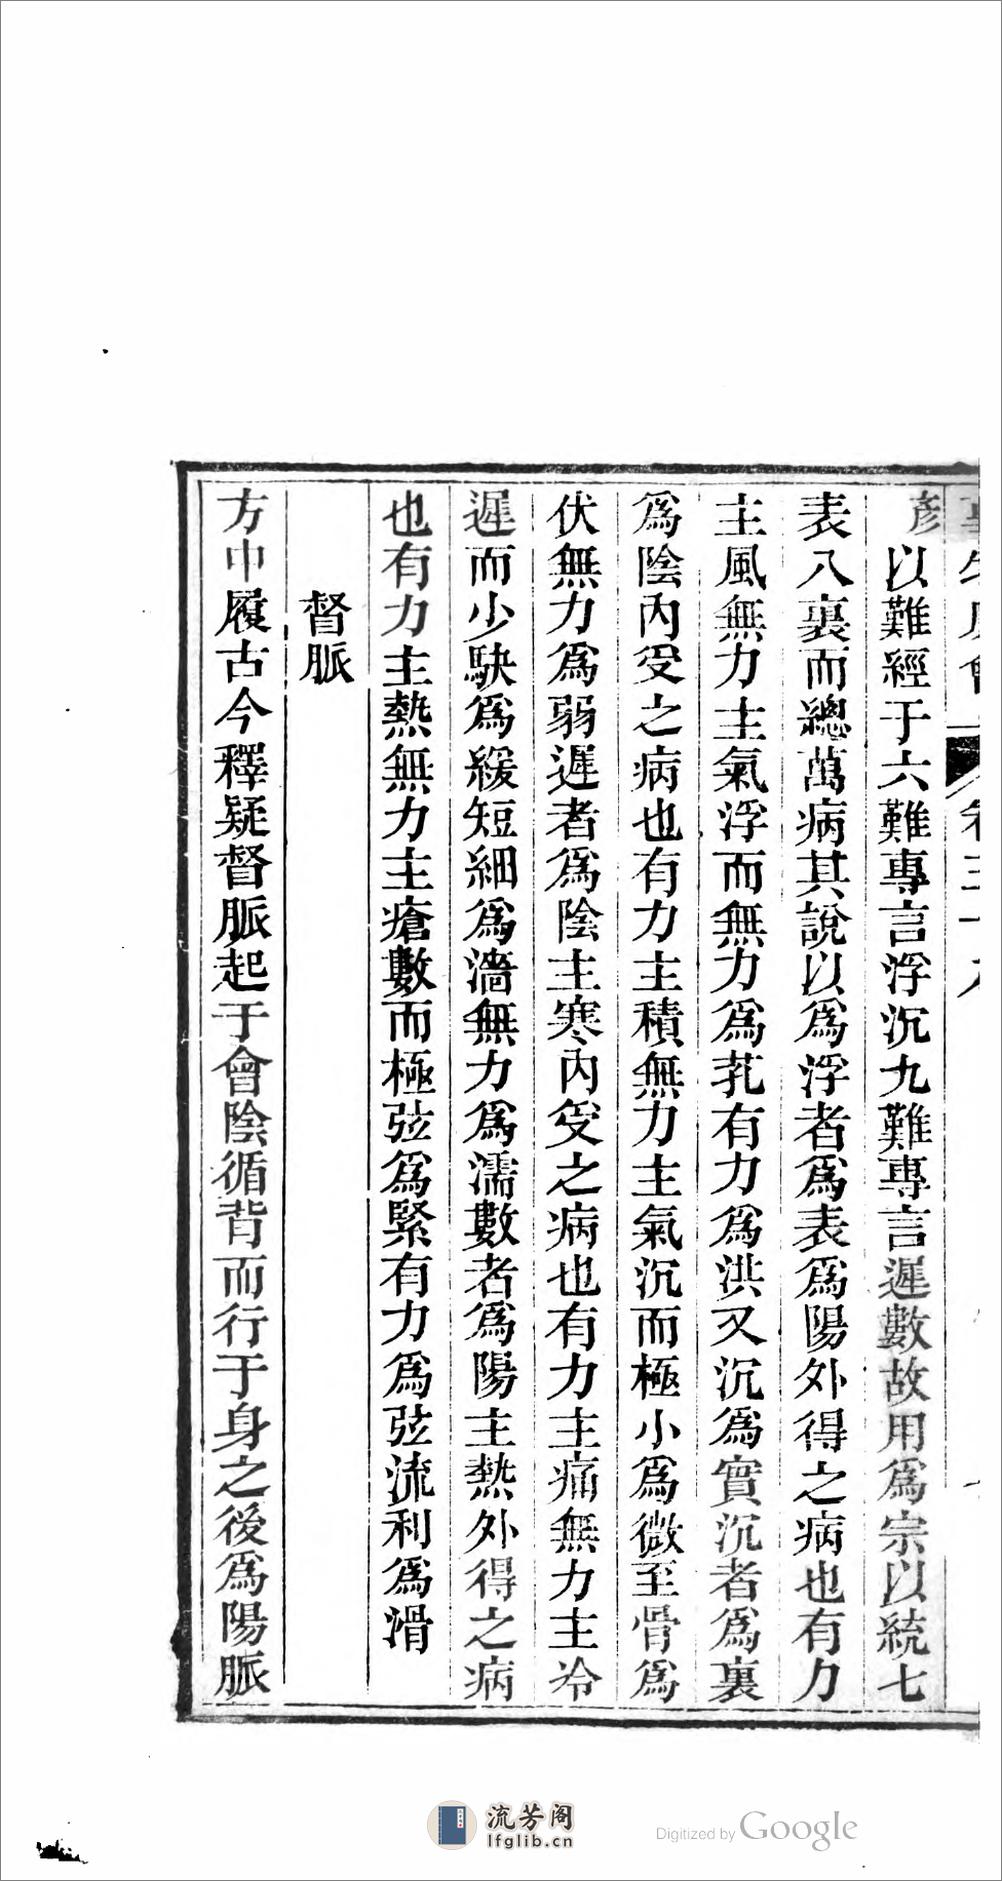 彥以難經于六難專言浮沉九難專言遲數故用爲宗以統七
表八裏而總萬病其說以爲浮者爲表爲陽外得之病也有力
主風無力主氣浮而無力爲芤有力爲洪又沉爲實沉者爲裏
爲陰內受之病也有力主積無力主氣沉而極小爲微至骨爲
伏無力爲弱遲者爲陰主寒內受之病也有力主痛無力主冷
遲而少駃爲緩短細爲濇無力爲濡數者爲陽主熱外得之病
也有力主熱無力主瘡數而極弦爲緊有力爲弦流利爲滑
督脈
方中履古今釋疑督脈起于會陰循背而行于身之後爲陽脈
流芳阁
lfglib.cn
Digitized by Google